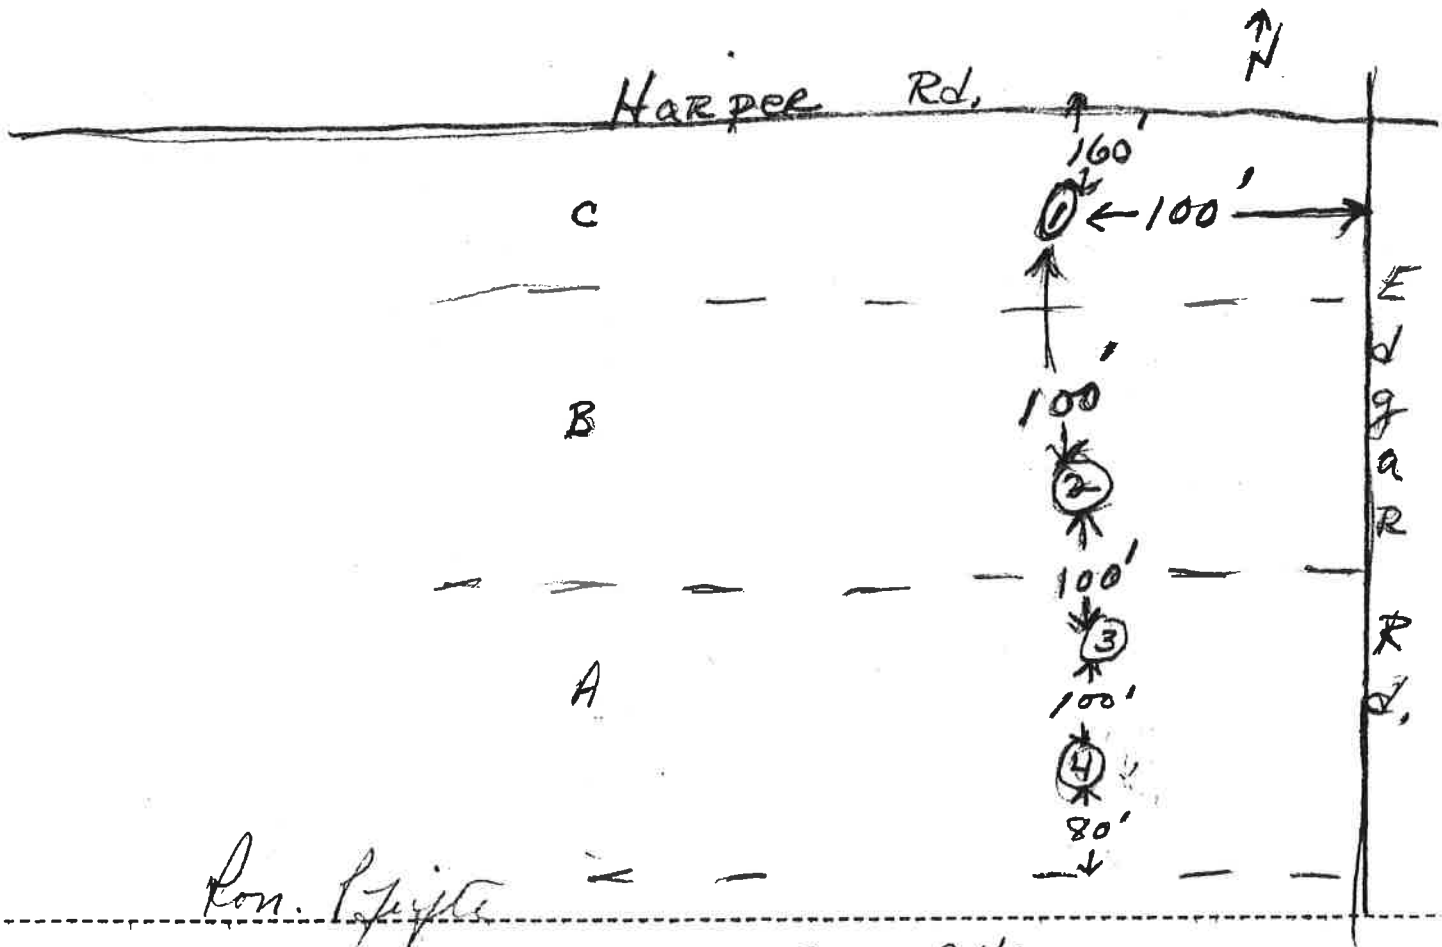 N
Harper Rd.
160'
C
1
100'
Edgar Rd.
100'
B
2
100'
3
A
100'
4
80'
Ron.